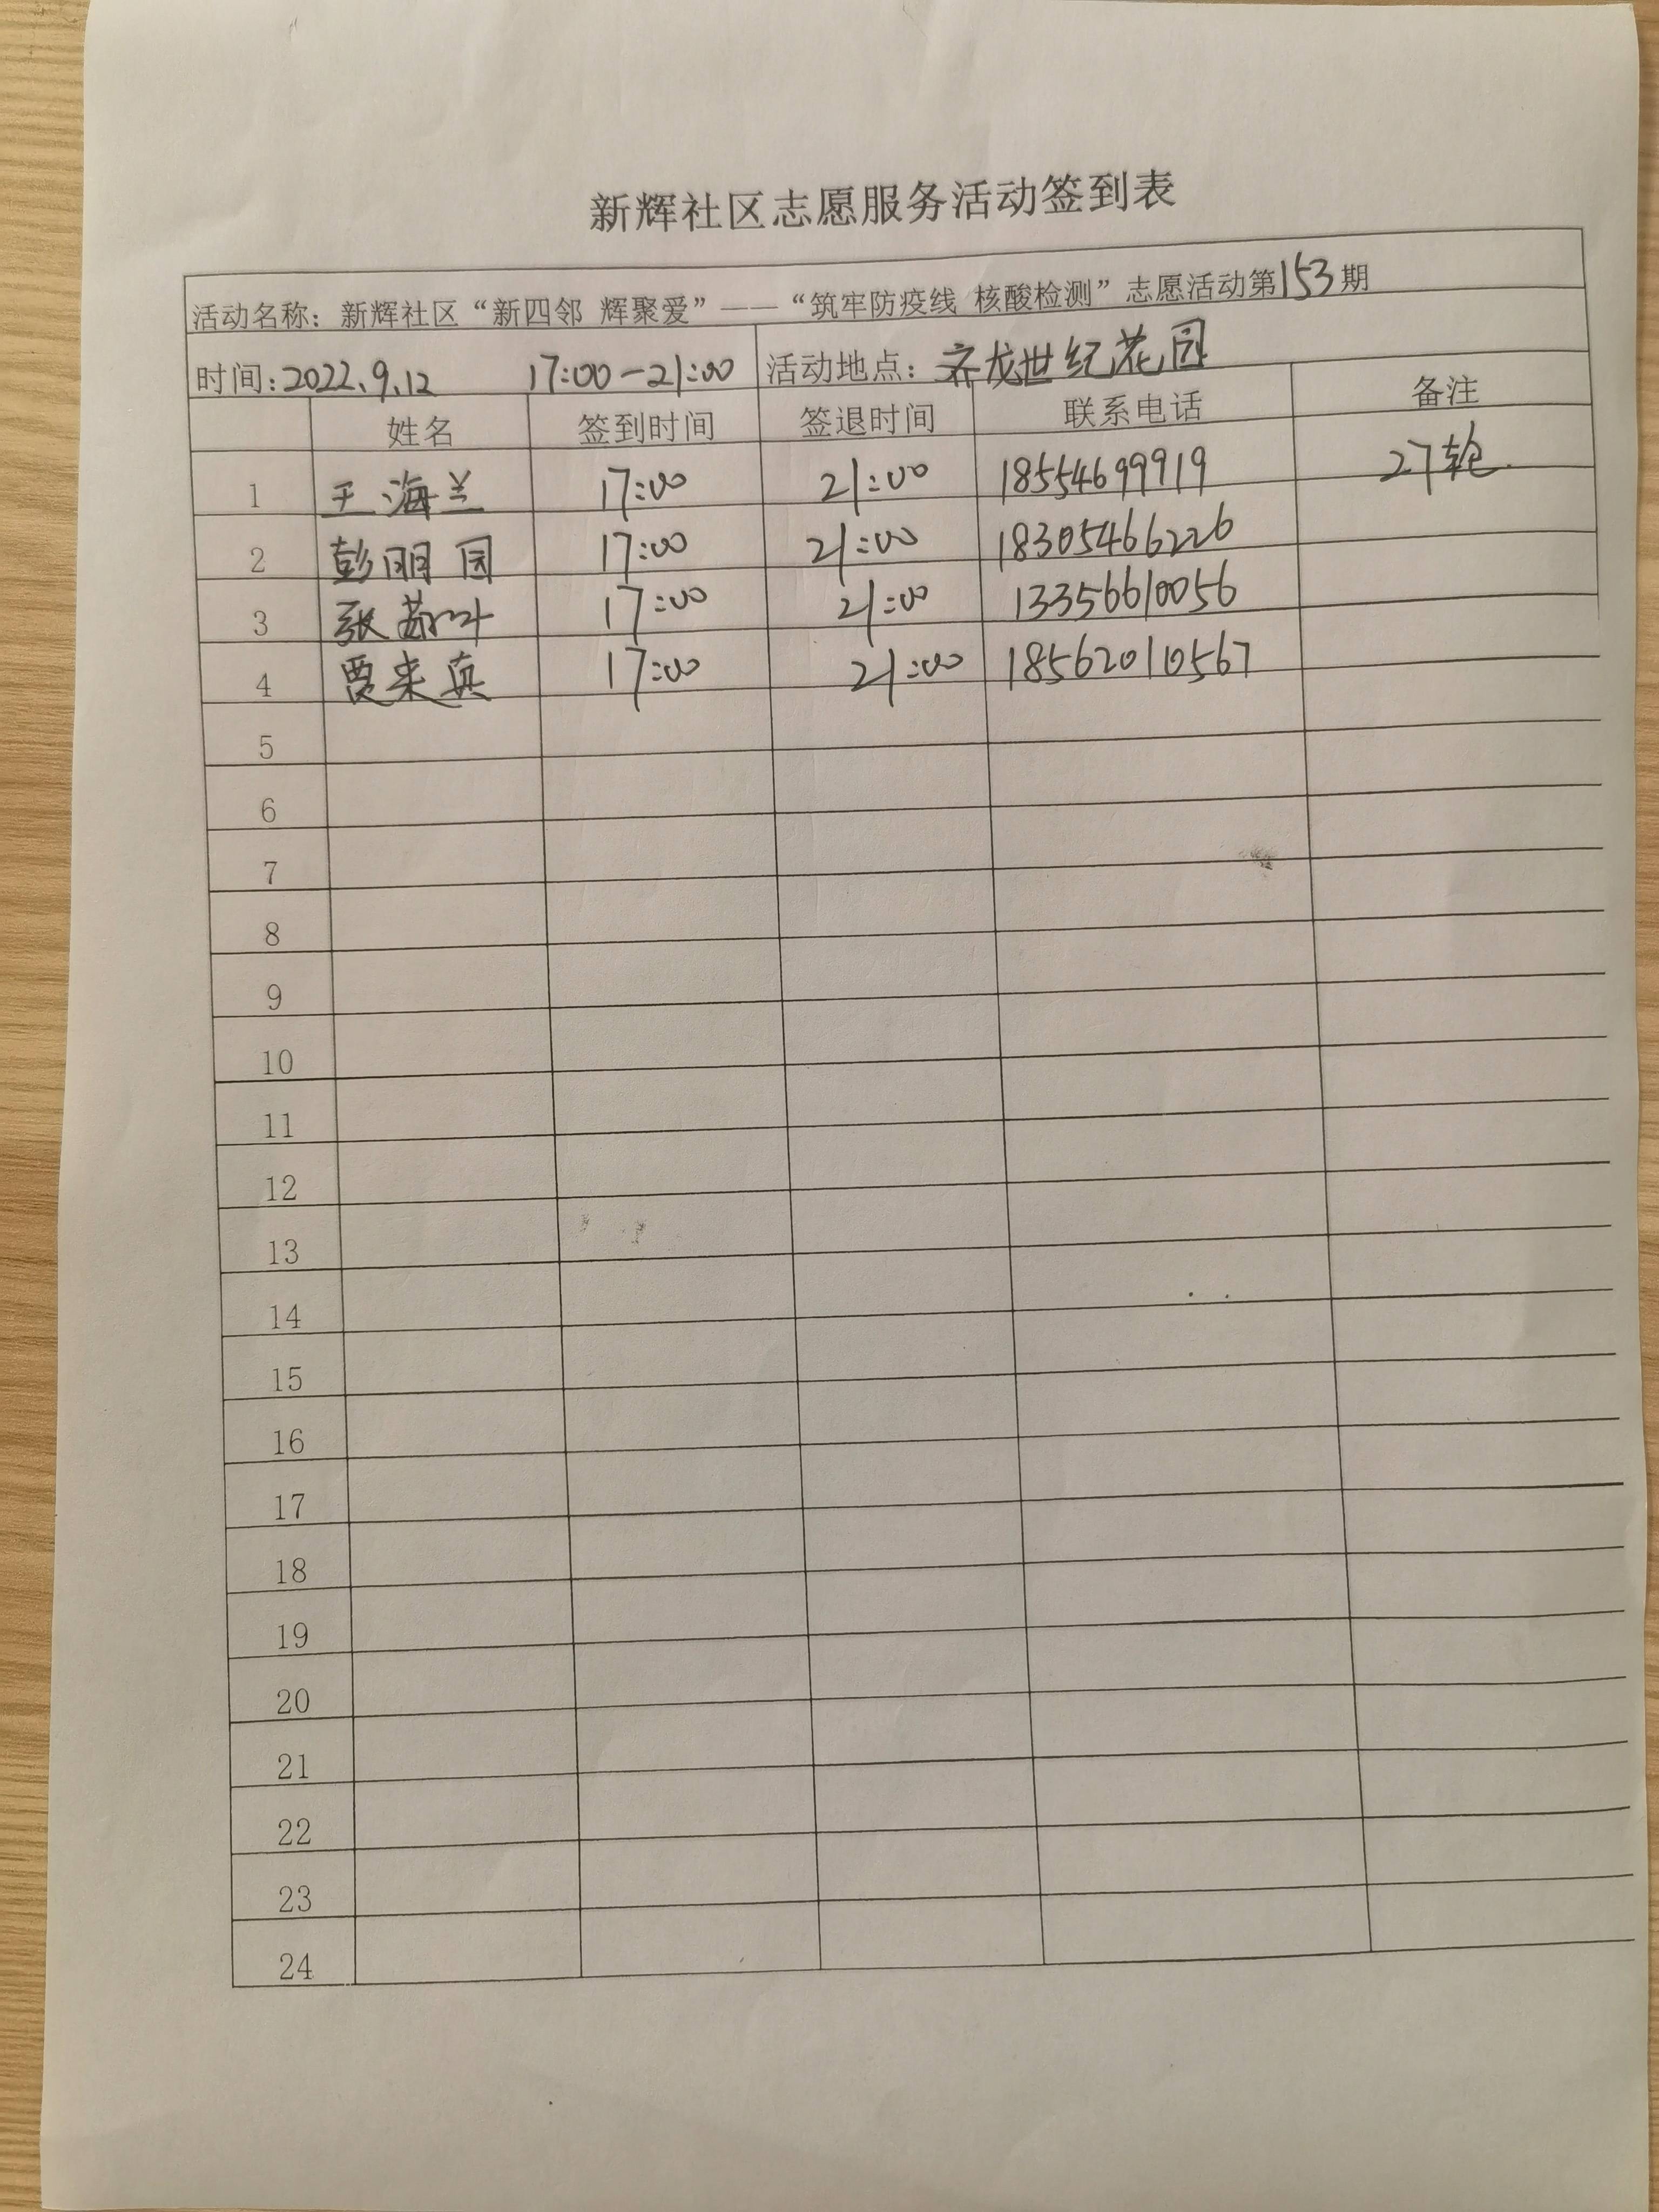 新辉社区志愿服务活动签到表
活动名称：新辉社区“新四邻 辉聚爱”——“筑牢防疫线 核酸检测”志愿活动第153期
时间：2022.9.12 17:00-21:00 活动地点：齐龙世纪花园
姓名 签到时间 签退时间 联系电话 备注
1 王海兰 17:00 21:00 18554699919 27轮
2 彭丽园 17:00 21:00 18305466226
3 张 17:00 21:00 13356610056
4 贾来真 17:00 21:00 18562010567
5
6
7
8
9
10
11
12
13
14
15
16
17
18
19
20
21
22
23
24